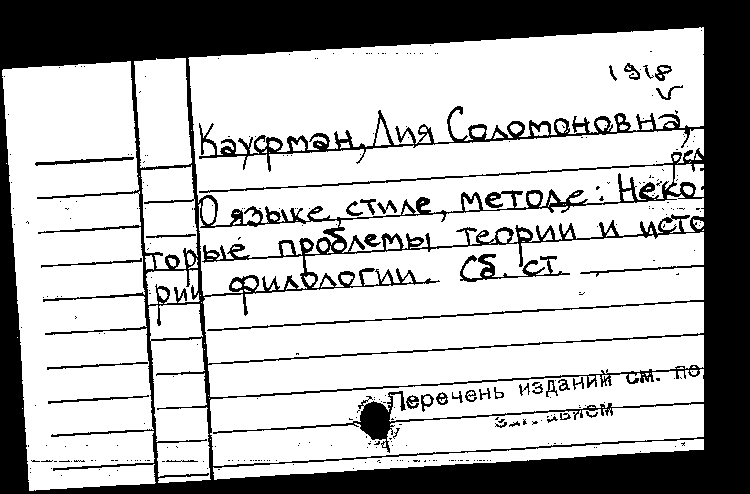 1918
Кауфман, Лия Соломоновна,
ред
О языке, стиле, методе: Неко-
торые проблемы теории и исто
рии филологии. Сб. ст.
Перечень изданий см. по